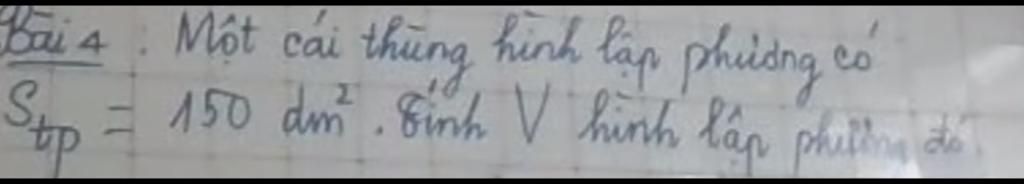 Bài 4 : Một cái thùng hình lập phương có
Stp = 150 dm². Tính V hình lập phương đó.